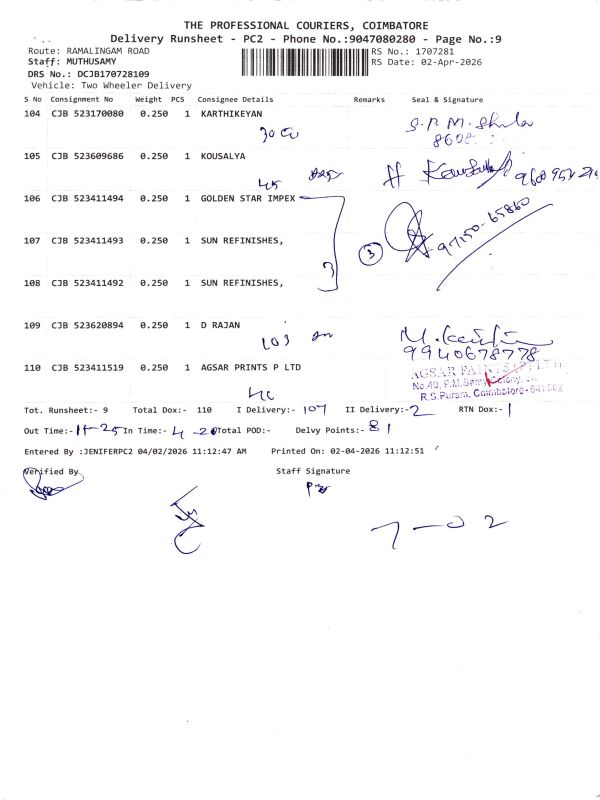 THE PROFESSIONAL COURIERS, COIMBATORE
Delivery Runsheet - PC2 - Phone No.:9047080280 - Page No.:9
Route: RAMALINGAM ROAD RS No.: 1707281
Staff: MUTHUSAMY RS Date: 02-Apr-2026
DRS No.: DCJB170728109
Vehicle: Two Wheeler Delivery
S No Consignment No Weight PCS Consignee Details Remarks Seal & Signature
104 CJB 523170080 0.250 1 KARTHIKEYAN
105 CJB 523609686 0.250 1 KOUSALYA
106 CJB 523411494 0.250 1 GOLDEN STAR IMPEX
97150-65860
107 CJB 523411493 0.250 1 SUN REFINISHES,
3
108 CJB 523411492 0.250 1 SUN REFINISHES,
109 CJB 523620894 0.250 1 D RAJAN
103
9940678778
110 CJB 523411519 0.250 1 AGSAR PRINTS P LTD
R.S.Puram, Coimbatore-641002
Tot. Runsheet:- 9 Total Dox:- 110 I Delivery:- 107 II Delivery:- 2 RTN Dox:- 1
Out Time:- 11-25 In Time:- 4-20 Total POD:- Delvy Points:- 81
Entered By :JENIFERPC2 04/02/2026 11:12:47 AM Printed On: 02-04-2026 11:12:51
Verified By Staff Signature
7-02